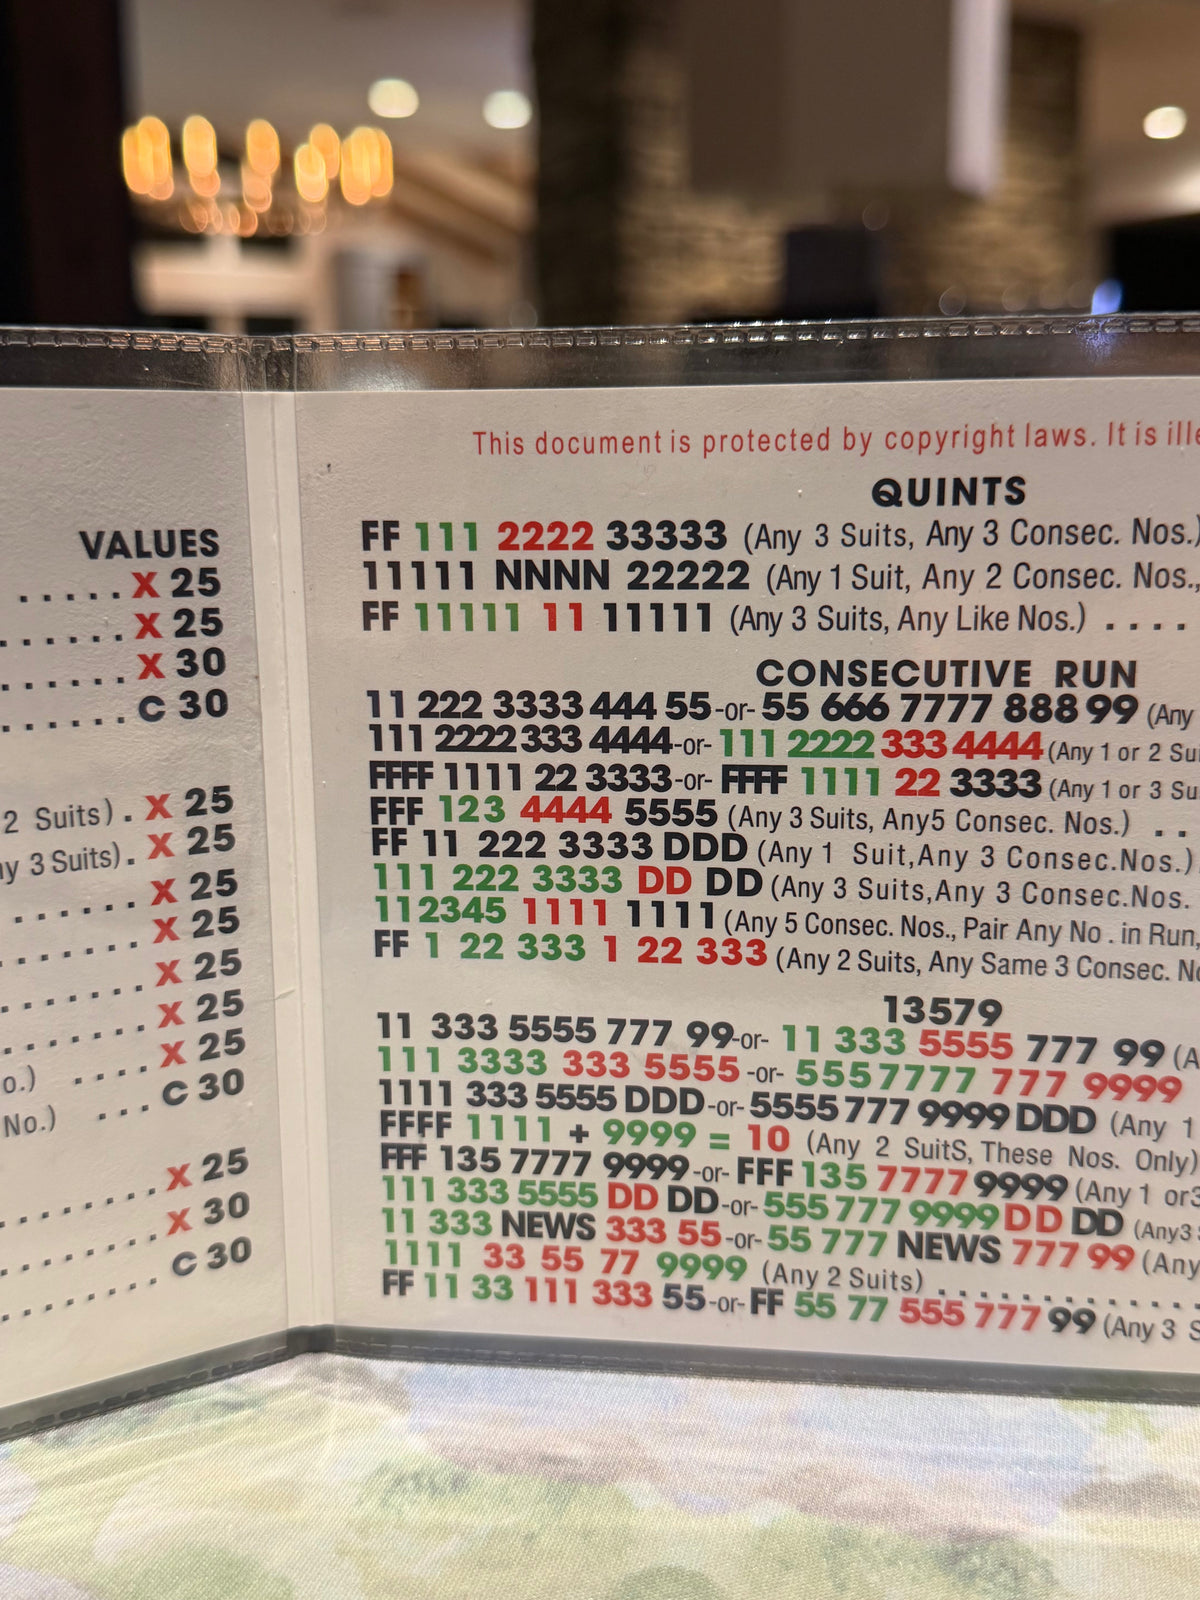 VALUES
.....X 25
......X 25
......X 30
......C 30
2 Suits). X 25
ny 3 Suits). X 25
......X 25
......X 25
.......X 25
.......X 25
o.) ....X 25
No.) ...C 30
.......X 25
.......X 30
.......C 30
This document is protected by copyright laws. It is ille
QUINTS
FF 111 2222 33333 (Any 3 Suits, Any 3 Consec. Nos.)
11111 NNNN 22222 (Any 1 Suit, Any 2 Consec. Nos.,
FF 11111 11 11111 (Any 3 Suits, Any Like Nos.) ....
CONSECUTIVE RUN
11 222 3333 444 55 -or- 55 666 7777 888 99 (Any
111 2222 333 4444 -or- 111 2222 333 4444 (Any 1 or 2 Sui
FFFF 1111 22 3333 -or- FFFF 1111 22 3333 (Any 1 or 3 Su
FFF 123 4444 5555 (Any 3 Suits, Any5 Consec. Nos.) ..
FF 11 222 3333 DDD (Any 1 Suit,Any 3 Consec.Nos.)
111 222 3333 DD DD (Any 3 Suits,Any 3 Consec.Nos.
112345 1111 1111 (Any 5 Consec. Nos., Pair Any No. in Run,
FF 1 22 333 1 22 333 (Any 2 Suits, Any Same 3 Consec. No
13579
11 333 5555 777 99 -or- 11 333 5555 777 99 (A
111 3333 333 5555 -or- 555 7777 777 9999
1111 333 5555 DDD -or- 5555 777 9999 DDD (Any 1
FFFF 1111 + 9999 = 10 (Any 2 SuitS, These Nos. Only)
FFF 135 7777 9999 -or- FFF 135 7777 9999 (Any 1 or3
111 333 5555 DD DD -or- 555 777 9999 DD DD (Any3 S
11 333 NEWS 333 55 -or- 55 777 NEWS 777 99 (Any
1111 33 55 77 9999 (Any 2 Suits) ............
FF 11 33 111 333 55 -or- FF 55 77 555 777 99 (Any 3 S